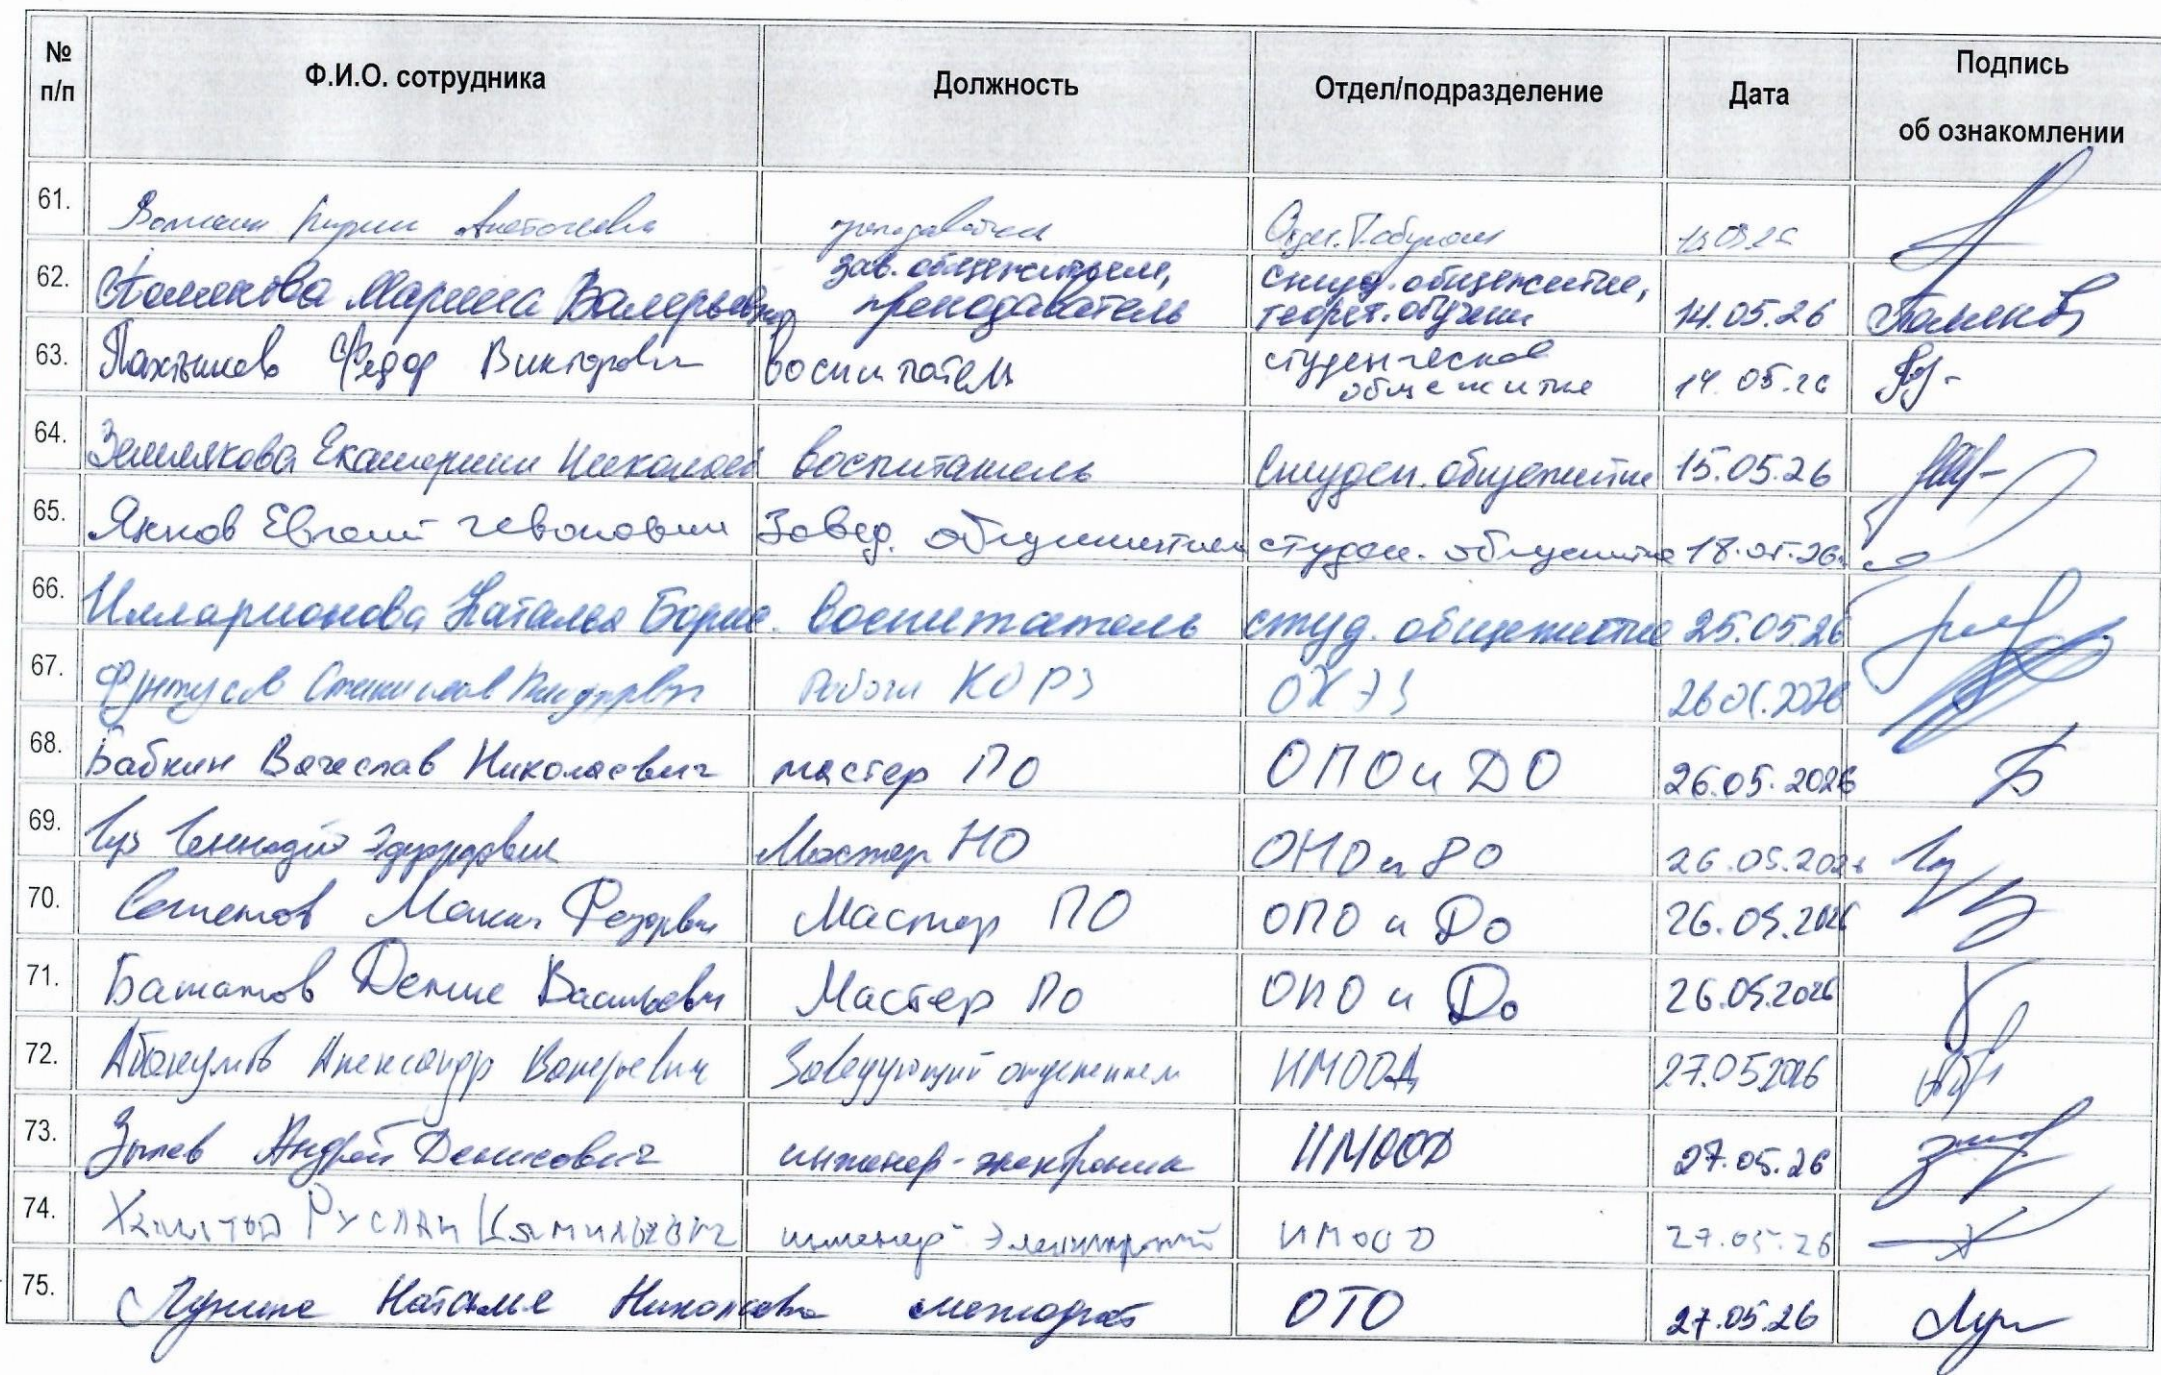 № п/п Ф.И.О. сотрудника Должность Отдел/подразделение Дата Подпись об ознакомлении
61. преподаватель
62. Полякова Марина Валерьевна зав. общежитием, преподаватель студ. общежитие, теорет. обучени 14.05.26
63. Федор Викторович воспитатель студенческое общежитие 14.05.26
64. Землякова Екатерина Николаев воспитатель Студен. общежитие 15.05.26
65. Евгений Завед. общежитием студен. общежитие 18.05.26
66. Илларионова Наталья Борис. воспитатель студ. общежитие 25.05.26
67. Станислав КОРЗ ОХЭЗ 26.05.2026
68. Бабкин Вячеслав Николаевич мастер ПО ОПО и ДО 26.05.2026 Б
69. Геннадий Эдуардович Мастер ПО ОПО и ДО 26.05.2026
70. Федорович Мастер ПО ОПО и До 26.05.2026
71. Денис Васильевич Мастер По ОПО и До 26.05.2026
72. Абакумов Александр Валерьевич Заведующий отделением ИМООД 27.05.2026
73. Зылев Андрей Денисович инженер-электроник ИМООД 27.05.26
74. Руслан Камильевич инженер ИМООД 27.05.26
75. Лунина Наталья Николаевна методист ОТО 27.05.26